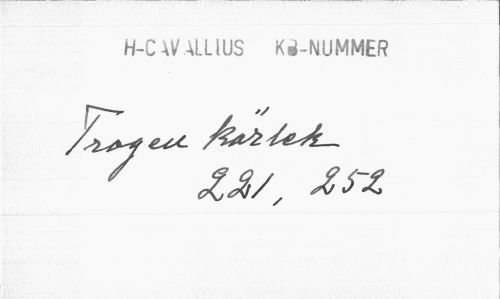 H-CAVALLIUS KB-NUMMER
Trogen kärlek
221, 252